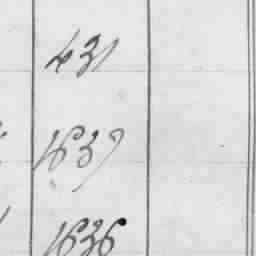 431
1637
1636